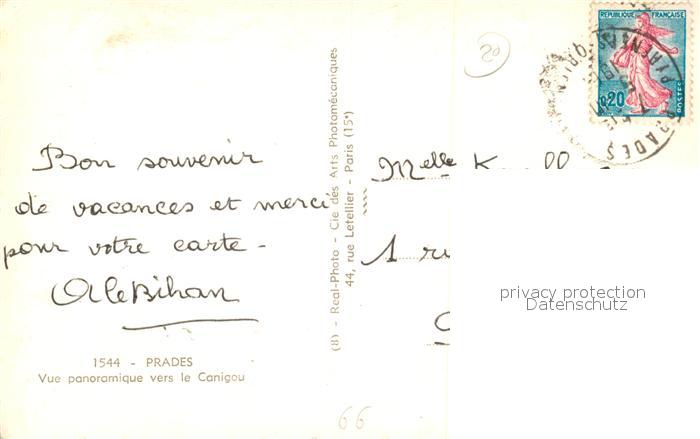 Bon souvenir
de vacances et merci
pour votre carte -
A Le Bihan
1544 - PRADES
Vue panoramique vers le Canigou
(8) - Real-Photo - Cie des Arts Photomécaniques
44, rue Letellier - Paris (15e)
20
REPUBLIQUE FRANÇAISE
0,20
POSTES
PRADES
PYRENEES
Melle K
1 ru
privacy protection
Datenschutz
66